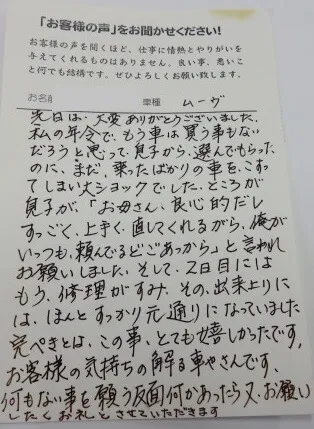 「お客様の声」をお聞かせください!
お客様の声を聞くほど、仕事に情熱とやりがいを
与えてくれるものはありません。良い事、悪いこ
と何でも結構です。ぜひよろしくお願い致します。
お名前 車種 ムーヴ
先日は、大変ありがとうございました。
私の年令で、もう車は買う事もない
だろうと思って、息子から、選んでもらった
のに、まだ、乗ったばかりの車を、こすっ
てしまい大ショックでした。ところが
息子が、「お母さん、良心的だし
すっごく、上手く、直してくれるから、俺が
いっつも、頼んでるどごあっから」と言われ
お願いしました。そして、2日目には
もう、修理がすみ、その、出来上りに
は、ほんとすっかり元通りになっていました
完ぺきとは、この事、とても嬉しかったです。
お客様の気持ちの解る車やさんです。
何もない事を願う反面何かあったら又、お願い
したくお礼とさせていただきます